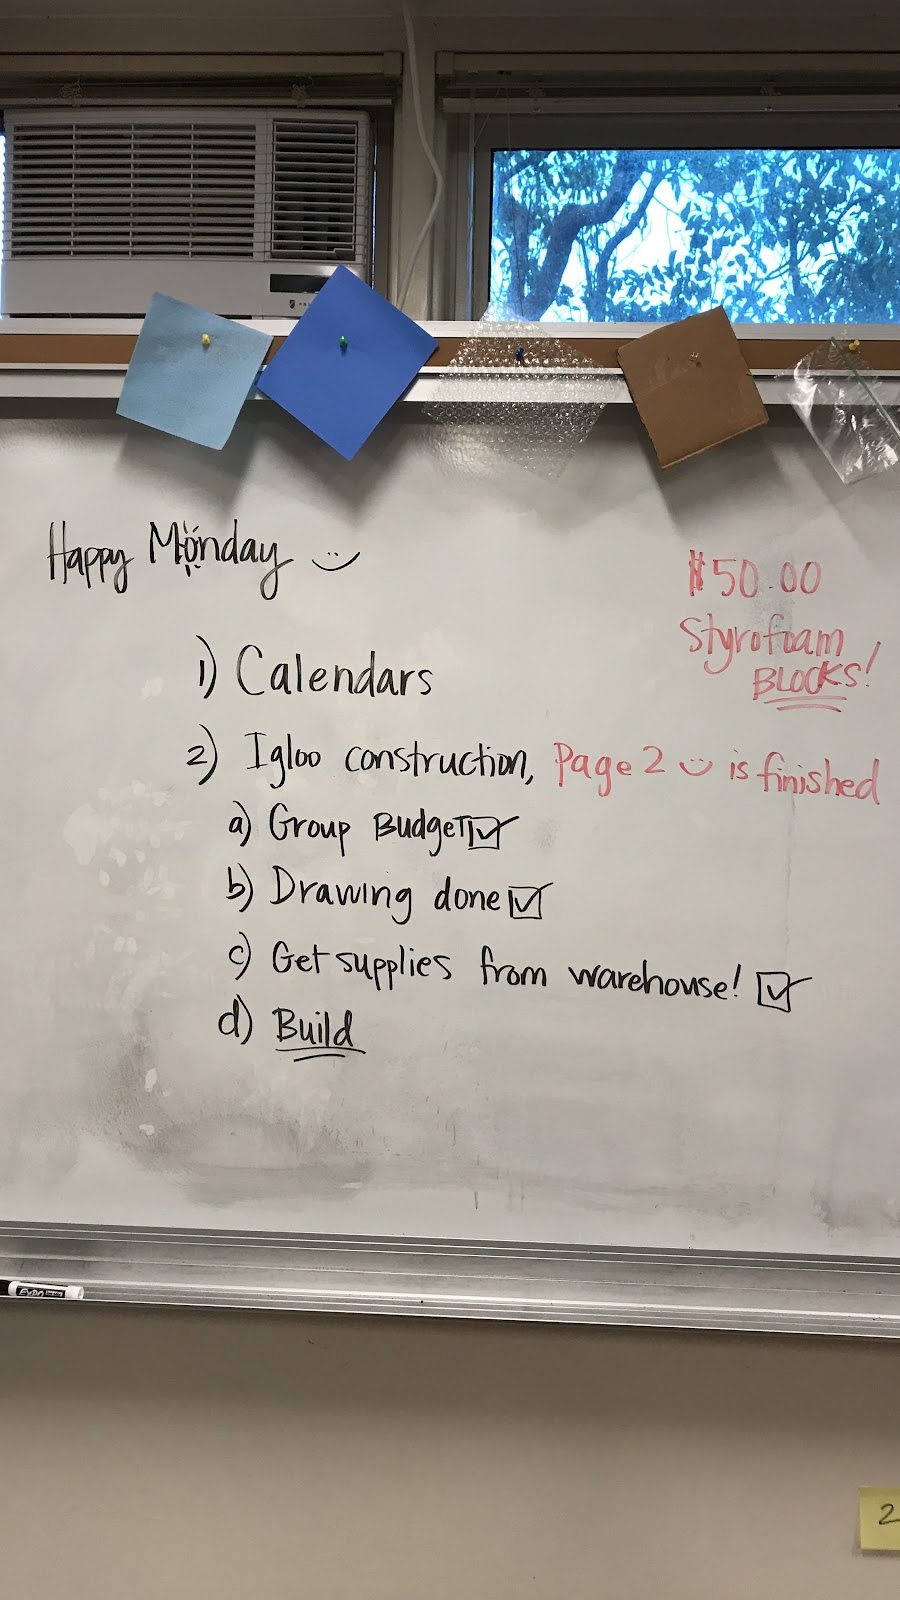 Happy Monday :)
$50.00
Styrofoam
BLOCKS!
1) Calendars
2) Igloo construction, Page 2 :) is finished
a) Group BudgeT ☑
b) Drawing done ☑
c) Get supplies from warehouse! ☑
d) Build
EXPO
2